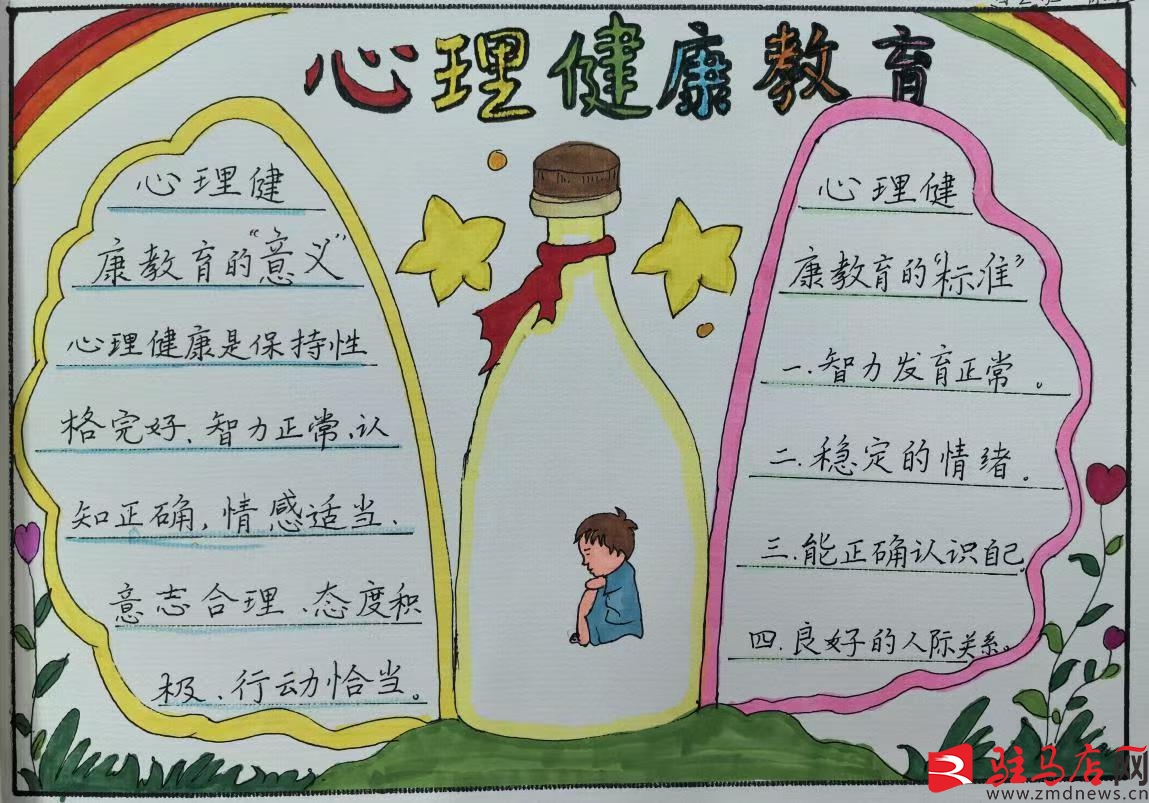 心理健康教育
心理健
康教育的“意义”
心理健康是保持性
格完好、智力正常、认
知正确，情感适当、
意志合理、态度积
极、行动恰当。
心理健
康教育的“标准”
一.智力发育正常。
二.稳定的情绪。
三.能正确认识自己
四.良好的人际关系。
驻马店网
www.zmdnews.cn